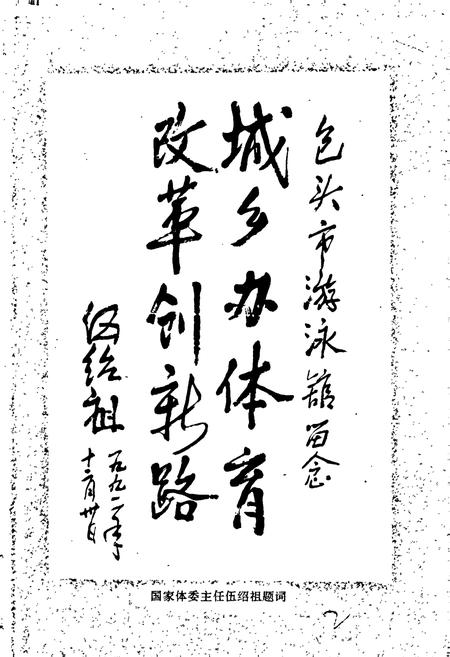 包头市游泳馆留念
城乡办体育
改革创新路
伍绍祖
一九九一年
十二月卅日
国家体委主任伍绍祖题词
2